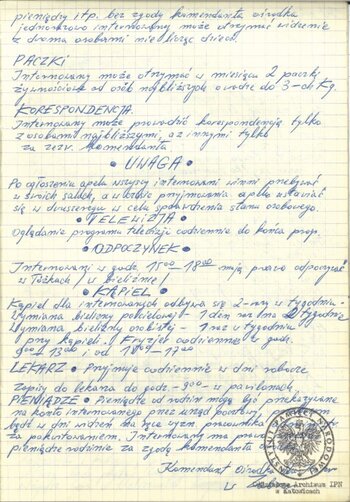 pieniędzy itp. bez zgody komendanta ośrodka
jednorazowo internowany może otrzymać widzenie
z dwoma osobami nie licząc dzieci.
PACZKI
Internowany może otrzymać w miesiącu 2 paczki
żywnościowe od osób najbliższych o wadze do 3-ch Kg.
KORESPONDENCJA
Internowany może prowadzić korespondencję tylko
z osobami najbliższymi, a z innymi tylko
za zezw. Komendanta
• UWAGA •
Po ogłoszeniu apelu wszyscy internowani winni przebywać
w swoich salach, a w trakcie przyjmowania apelu ustawiać
się w dwuszeregu w celu sprawdzenia stanu osobowego.
• TELEWIZJA •
Oglądanie programu telewizji codziennie do końca prog.
• ODPOCZYNEK •
Internowani w godz. 1500 - 1800 mają prawo odpoczywać
w łóżkach / w bieliźnie
• KĄPIEL •
Kąpiel dla internowanych odbywa się 2-razy w tygodniu.
Wymiana bielizny pościelowej - 1 den raz na 2 tygodnie
Wymiana bielizny osobistej - 1 raz w tygodniu
przy kąpieli. Fryzjer codziennie w godz.
900 - 1300 i od 1500 - 1700
LEKARZ • Przyjmuje codziennie w dni robocze
Zapisy do lekarza do godz. - 900 - w pawilonach
PIENIĄDZE • Pieniądze od rodzin mogą być przekazywane
na konto internowanego przez urząd pocztowy
bądź w dni widzeń na ręce wyzn. pracownika
za pokwitowaniem. Internowany ma prawo
pieniądze rodzinie za zgodą komendanta
Komendant Ośrodka
Archiwum IPN
w Katowicach